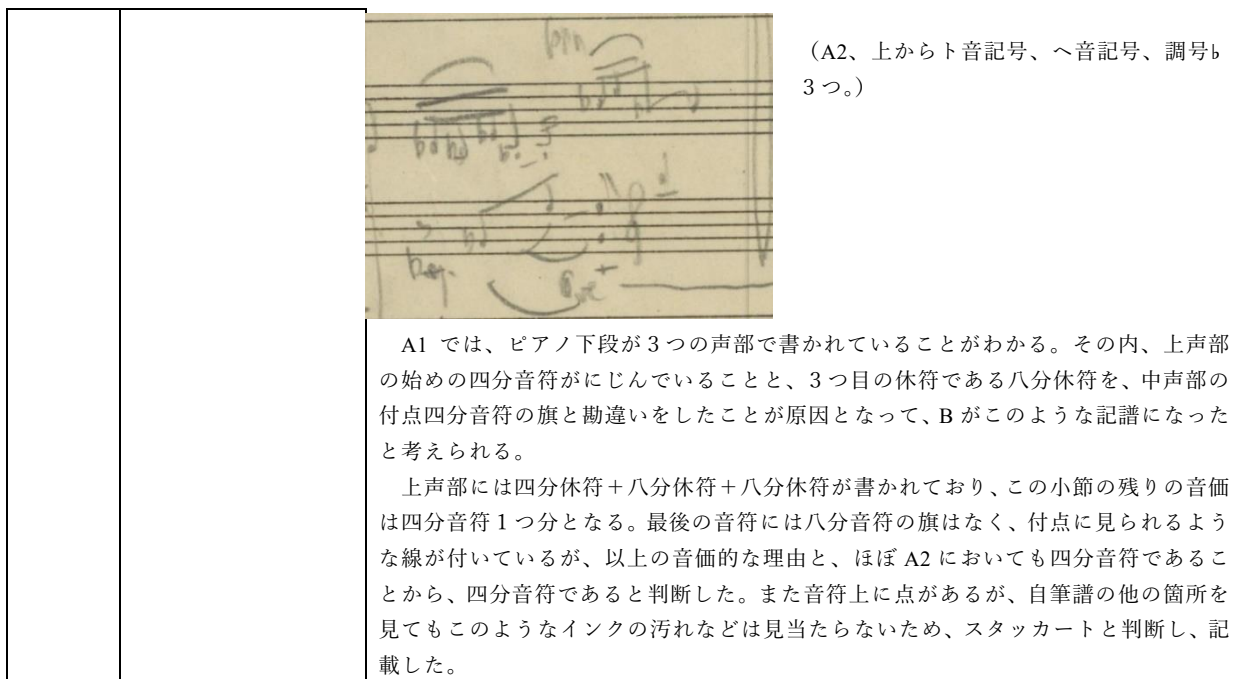 （A2、上からト音記号、ヘ音記号、調号♭
３つ。）
A1 では、ピアノ下段が３つの声部で書かれていることがわかる。その内、上声部
の始めの四分音符がにじんでいることと、３つ目の休符である八分休符を、中声部の
付点四分音符の旗と勘違いをしたことが原因となって、B がこのような記譜になった
と考えられる。
上声部には四分休符＋八分休符＋八分休符が書かれており、この小節の残りの音価
は四分音符１つ分となる。最後の音符には八分音符の旗はなく、付点に見られるよう
な線が付いているが、以上の音価的な理由と、ほぼ A2 においても四分音符であるこ
とから、四分音符であると判断した。また音符上に点があるが、自筆譜の他の箇所を
見てもこのようなインクの汚れなどは見当たらないため、スタッカートと判断し、記
載した。